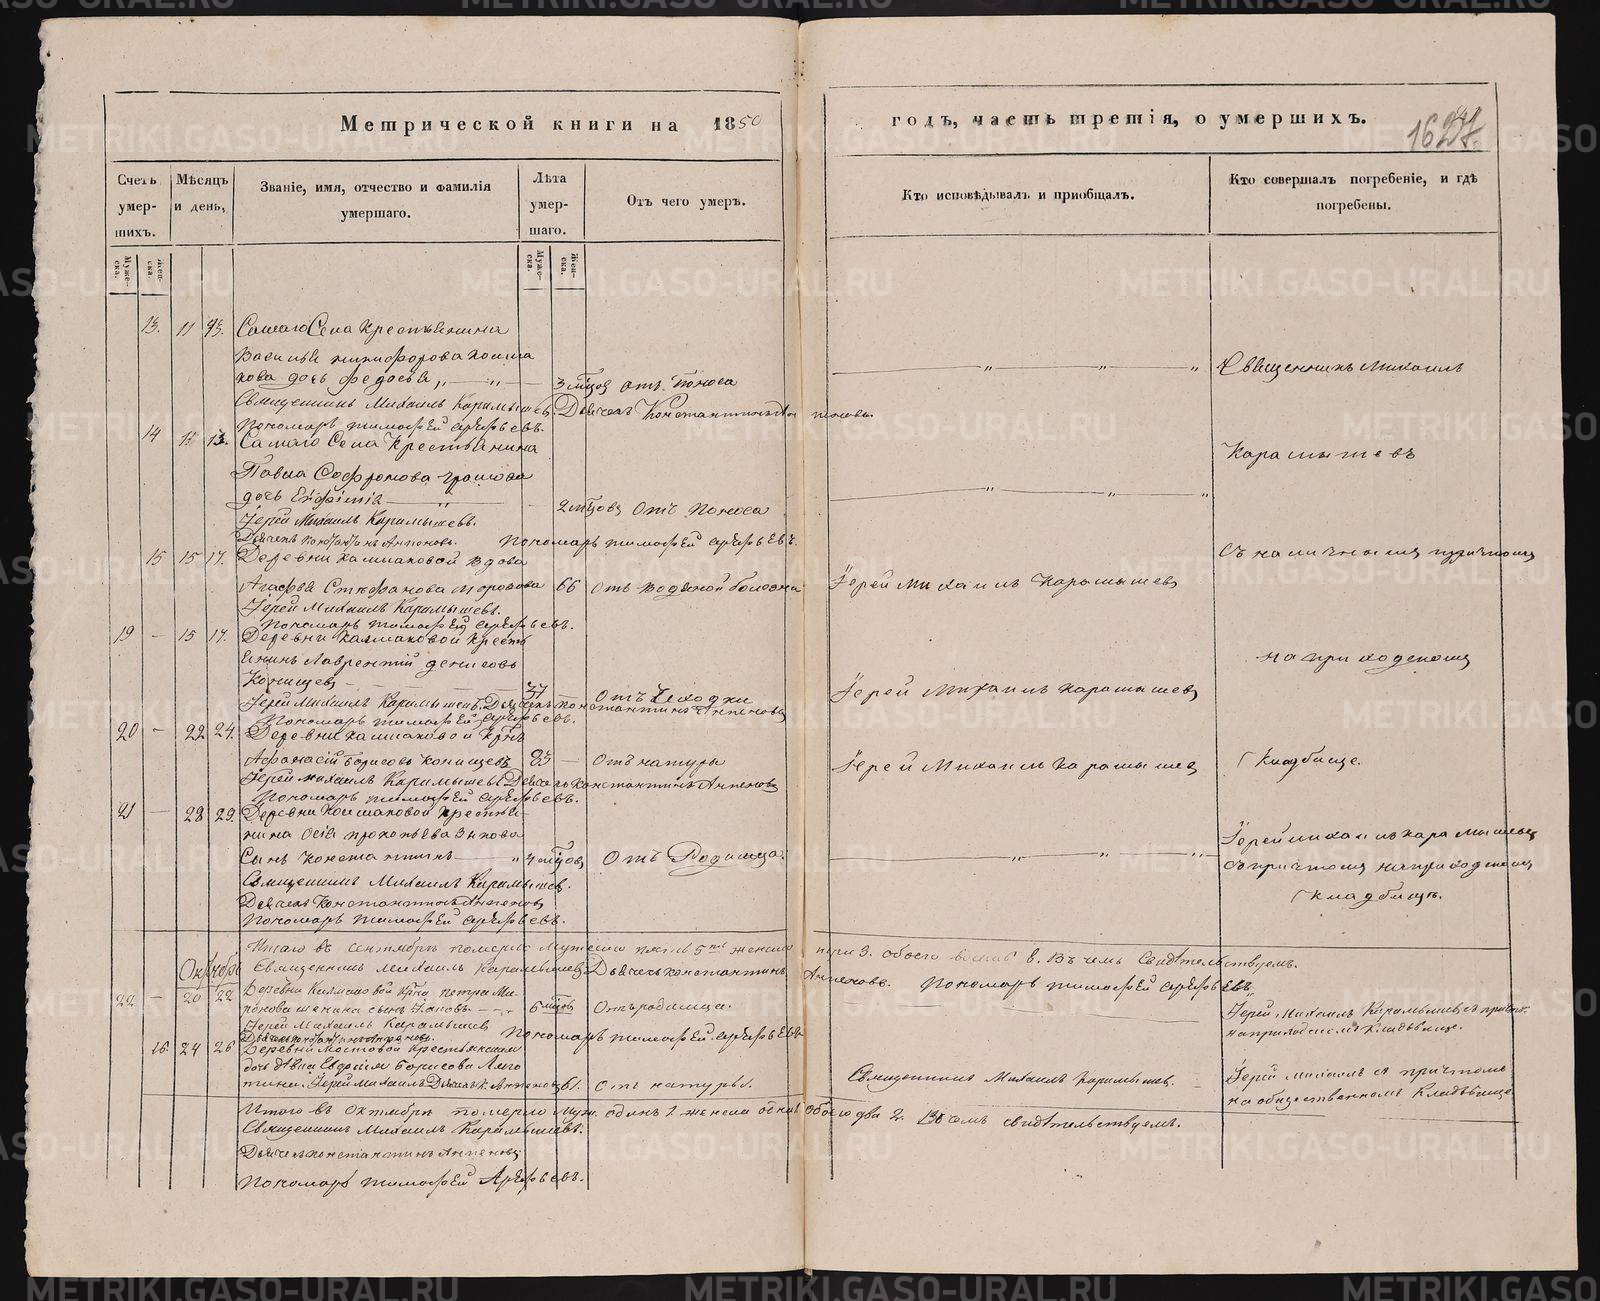 Метрической книги на 1850
годъ, часть третія, о умершихъ.
1627
Счетъ умер- шихъ.
Мѣсяцъ и день,
Званіе, имя, отчество и фамилія умершаго.
Лѣта умер- шаго.
Отъ чего умеръ.
Кто исповѣдывалъ и пріобщалъ.
Кто совершалъ погребеніе, и гдѣ погребены.
Муже- ска.
Жен- ска.
Муже- ска.
Жен- ска.
13. 11 13. Самаго Села Крестьянина
Василья Никифорова
дочь Федосья 3 мцов отъ поноса
Священникъ Михаилъ
Священникъ Михаилъ Карамышевъ. Дьячекъ Константинъ
Пономарь Тимофей Арефьевъ.
14 11 13. Самаго Села Крестьянина
Карамышевъ
Павла Софронова
дочь Евфимія 2 мцовъ Отъ Поноса
Іерей Михаилъ Карамышевъ.
Дьячекъ Константинъ Антеновъ. Пономарь Тимофей Арефьевъ.
15 15 17. Деревни Калмаковой вдова
Съ наличнымъ причтомъ
Агафья Стефанова 66 Отъ водяной болезни Іерей Михаилъ Карамышев
Іерей Михаилъ Карамышевъ.
Пономарь Тимофей Арефьевъ.
19 — 15 17. Деревни Калмаковой Кресть
янинъ Лаврентій Денисовъ
на приходскомъ
Конищев 37 — Отъ Чаходки Іерей Михаилъ Карамышев
Іерей Михаилъ Карамышевъ. Дьячекъ Константинъ Антеновъ
Пономарь Тимофей Арефьевъ.
20 — 22 24. Деревни Калмаковой Крнъ
Афанасій Борисовъ Конищевъ 83 — Отъ натуры Іерей Михаилъ Карамышев
Кладбище.
Іерей Михаилъ Карамышевъ Дьячекъ Константинъ Антеновъ
Пономарь Тимофей Арефьевъ.
21 — 28 29. Деревни Калмаковой Крестья-
нина Осія Прокопьева Зыкова
Іерей Михаилъ Карамышевъ
Сынъ Константинъ 4 мцовъ Отъ Родимца.
Съ причтомъ на приходскомъ
Священникъ Михаилъ Карамышев.
Дьячекъ Константинъ Антеновъ
Кладбище.
Пономарь Тимофей Арефьевъ.
Итого въ Сентябрѣ померло Мужеска пять 5 женска три 3. обоего восемь 8. Въ чемъ Свидѣтельствуемъ.
Октябрь Священникъ Михаилъ Карамышевъ Дьячекъ Константинъ Антеновъ. Пономарь Тимофей Арефьевъ
22 — 20 22 Деревни Калмаковой Крна Петра Ми-
ронова сынъ Іаковъ 6 мцовъ Отъ родимца.
Іерей Михаилъ Карамышевъ съ причт.
на приходскомъ Кладбище.
Іерей Михаилъ Карамышев
Дьячекъ Константинъ Антеновъ. Пономарь Тимофей Арефьевъ
16 24 26 Деревни Мостовой Крестьянская
дочь дѣвка Евфимія Борисова
Іерей Михаилъ Дьячекъ К. Антеновъ 61. отъ натуры. Священникъ Михаилъ Карамышев.
Іерей Михаилъ съ причтомъ
на общественномъ Кладбище
Итого въ Октябрѣ померло Муж. одинъ 1 женска одна 1 обоего два 2. Въ чемъ свидѣтельствуемъ.
Священникъ Михаилъ Карамышевъ.
Дьячекъ Константинъ Антеновъ
Пономарь Тимофей Арефьевъ.
METRIKI.GASO-URAL.RU